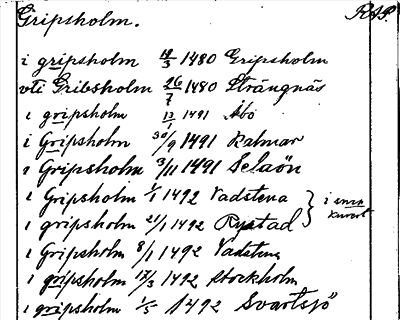 Gripsholm. RAP.
i gripsholm 12/3 1480 Gripsholm
vti Gribsholm 26/7 1480 Strängnäs
i gripsholm 13/1 1491 Åbo
i Gripsholm 30/9 1491 Kalmar
i Gripsholm 3/11 1491 Selaön
i Gripsholm 1/1 1492 Vadstena
i gripsholm 21/1 1492 Rystad
i Gripsholm 8/1 1492 Vadstena
i gripsholm 17/3 1492 Stockholm
i gripsholm 1/5 1492 Svartsjö